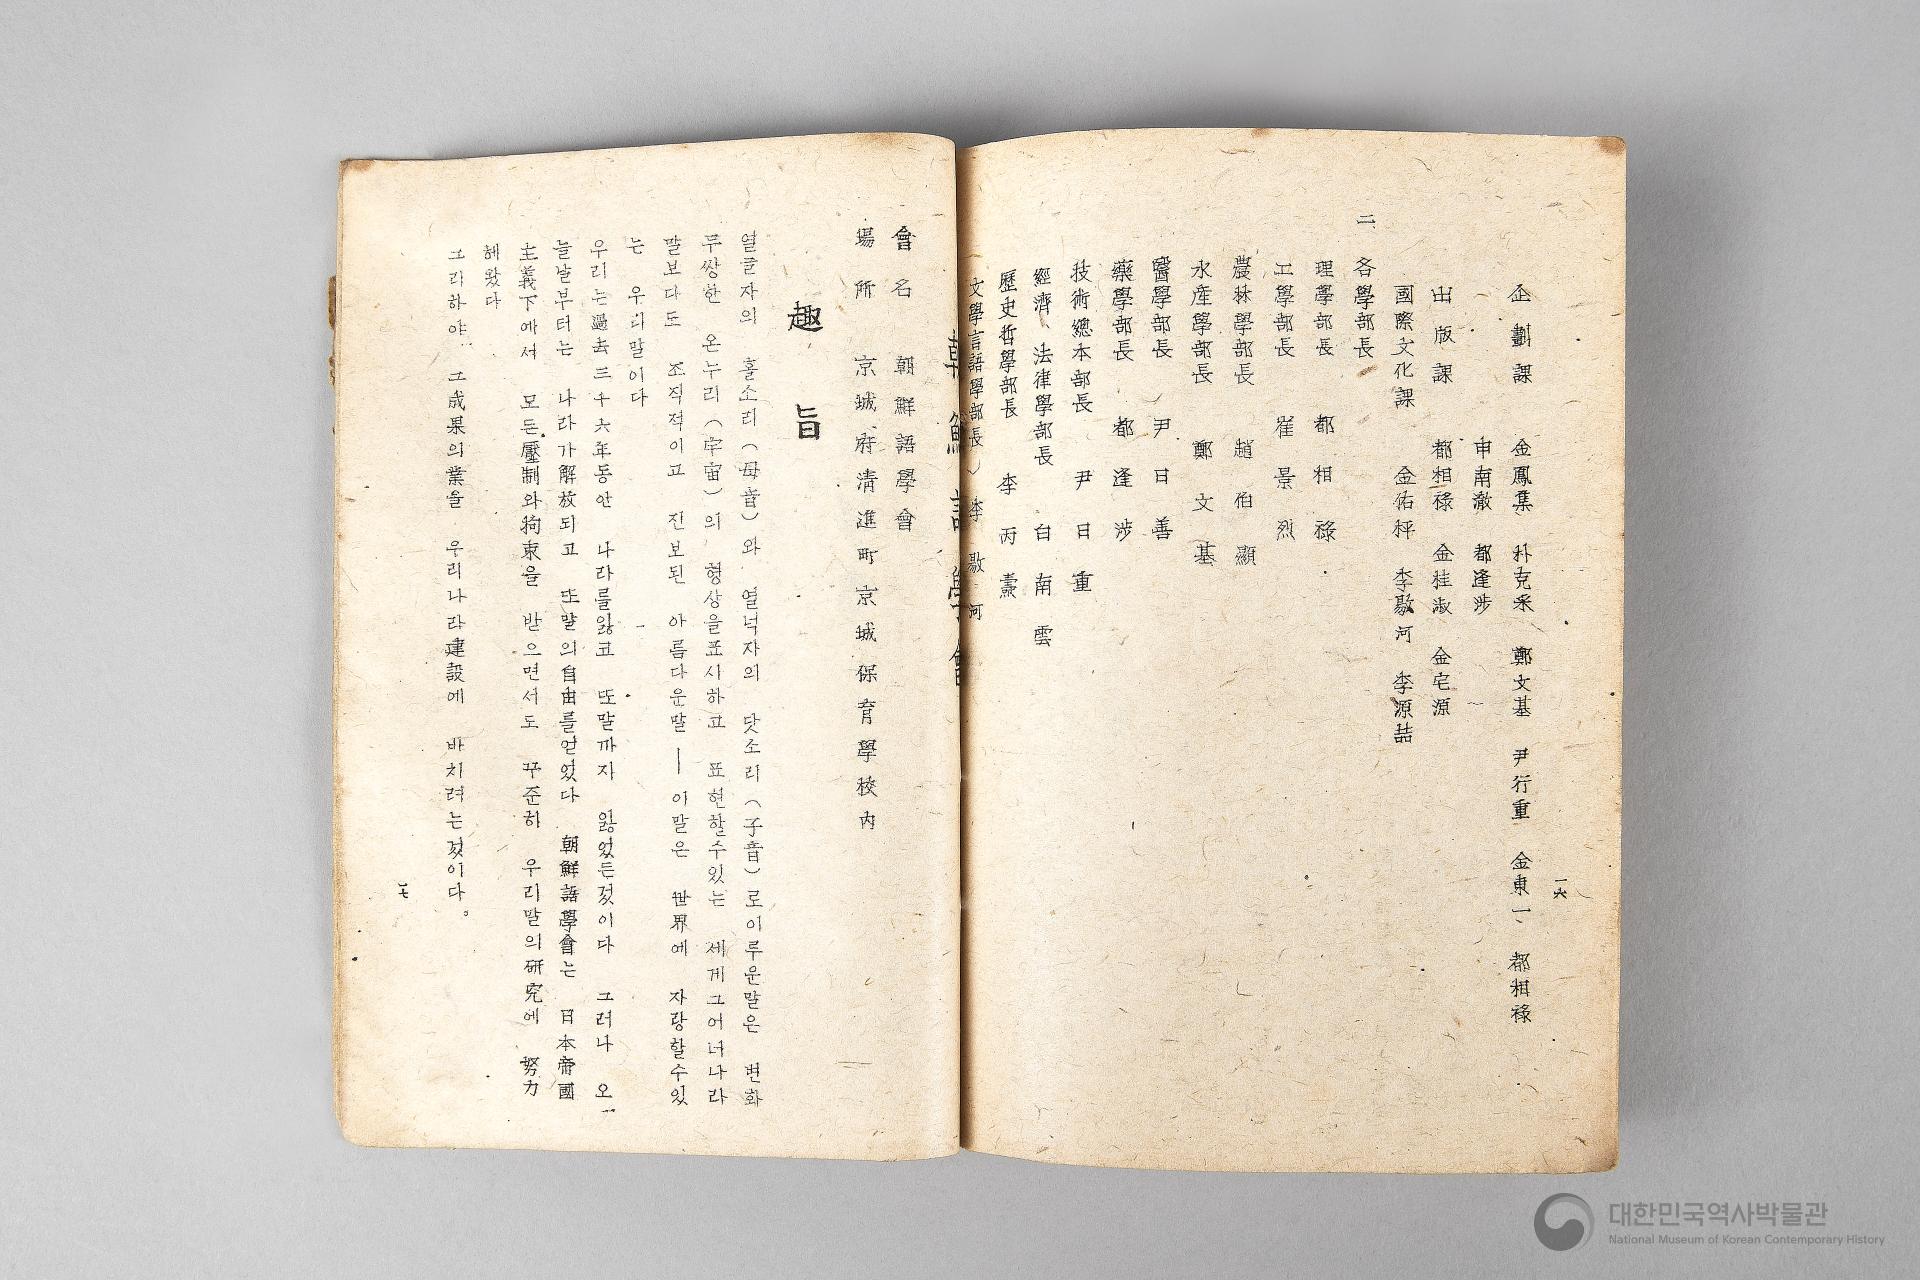 企劃課 金鳳集 朴克采 鄭文基 尹行重 金東一、都相祿
申南澈 都逢涉
出版課 都相祿 金桂淑 金宅源
國際文化課 金佑枰 李敭河 李源喆
二、各學部長
理學部長 都相祿
工學部長 崔景烈
農林學部長 趙伯顯
水産學部長 鄭文基
醫學部長 尹日善
藥學部長 都逢涉
技術總本部長 尹日重
經濟、法律學部長 白南雲
歷史哲學部長 李丙燾
(文學言語學部長) 李敭河
一六
朝鮮語學會
會名 朝鮮語學會
場所 京城府淸進町京城保育學校內
趣旨
열글자의 홀소리(母音)와 열넉자의 닷소리(子音)로이루운말은 변화
무쌍한 온누리(宇宙)의 형상을표사하고 표현할수있는 세게그어너나라
말보다도 조직적이고 진보된 아름다운말—이말은 世界에 자랑할수있
는 우리말이다
우리는過去三十六年동안 나라를잃고 또말까지 잃었든것이다 그러나 오
늘날부터는 나라가解放되고 또말의自由를얻었다 朝鮮語學會는 日本帝國
主義下에서 모든壓制와拘束을 받으면서도 꾸준히 우리말의硏究에 努力
해왔다
그리하야 그成果의業을 우리나라建設에 바치려는것이다。
一七
대한민국역사박물관
National Museum of Korean Contemporary History